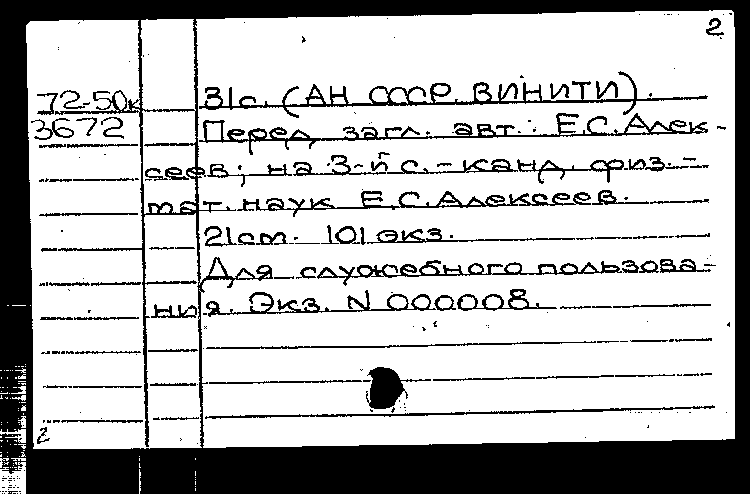 2
72-50к 31с. (АН СССР. ВИНИТИ).
3672 Перед загл. авт.: Е.С.Алек-
сеев; на 3-й с. - канд. физ.-
мат. наук Е.С.Алексеев.
21см. 101 экз.
Для служебного пользова-
ния. Экз. N 000008.
2